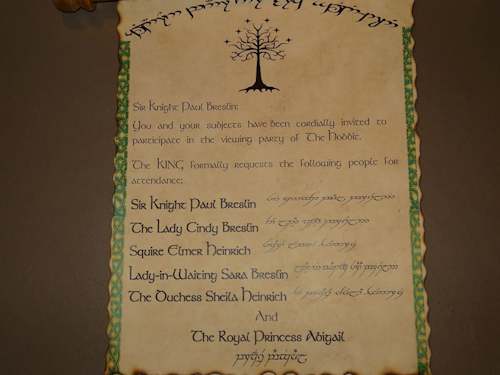 Sir Knight Paul Breslin:
You and your subjects have been cordially invited to
participate in the viewing party of The Hobbit.
The KING formally requests the following people for
attendance:
Sir Knight Paul Breslin
The Lady Cindy Breslin
Squire Elmer Heinrich
Lady-in-Waiting Sara Breslin
The Duchess Sheila Heinrich
And
The Royal Princess Abigail